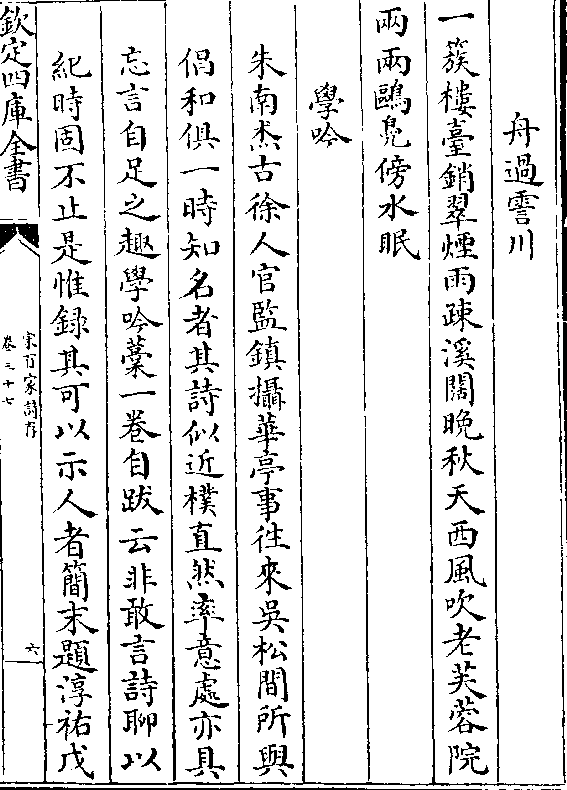 舟過霅川
一簇樓臺銷翠煙雨疎溪闊晚秋天西風吹老芙蓉院
兩兩鷗鳬傍水眠
學吟
朱南杰古徐人官監鎮攝華亭事徃來吳松間所與
倡和俱一時知名者其詩似近樸直然率意處亦具
忘言自足之趣學吟藳一卷自跋云非敢言詩聊以
紀時固不止是惟録其可以示人者簡末題淳祐戊
欽定四庫全書
宋百家詩存
卷三十七
六